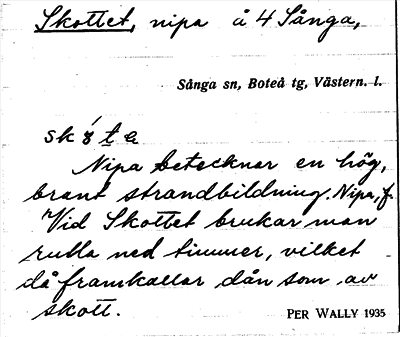 Skottet, nipa å 4 Sånga,
Sånga sn, Boteå tg, Västern. l.
Nipa betecknar en hög,
brant strandbildning. Nipa, f.
Vid Skottet brukar man
rulla ned timmer, vilket
då framkallar dån som av
skott.
PER WALLY 1935